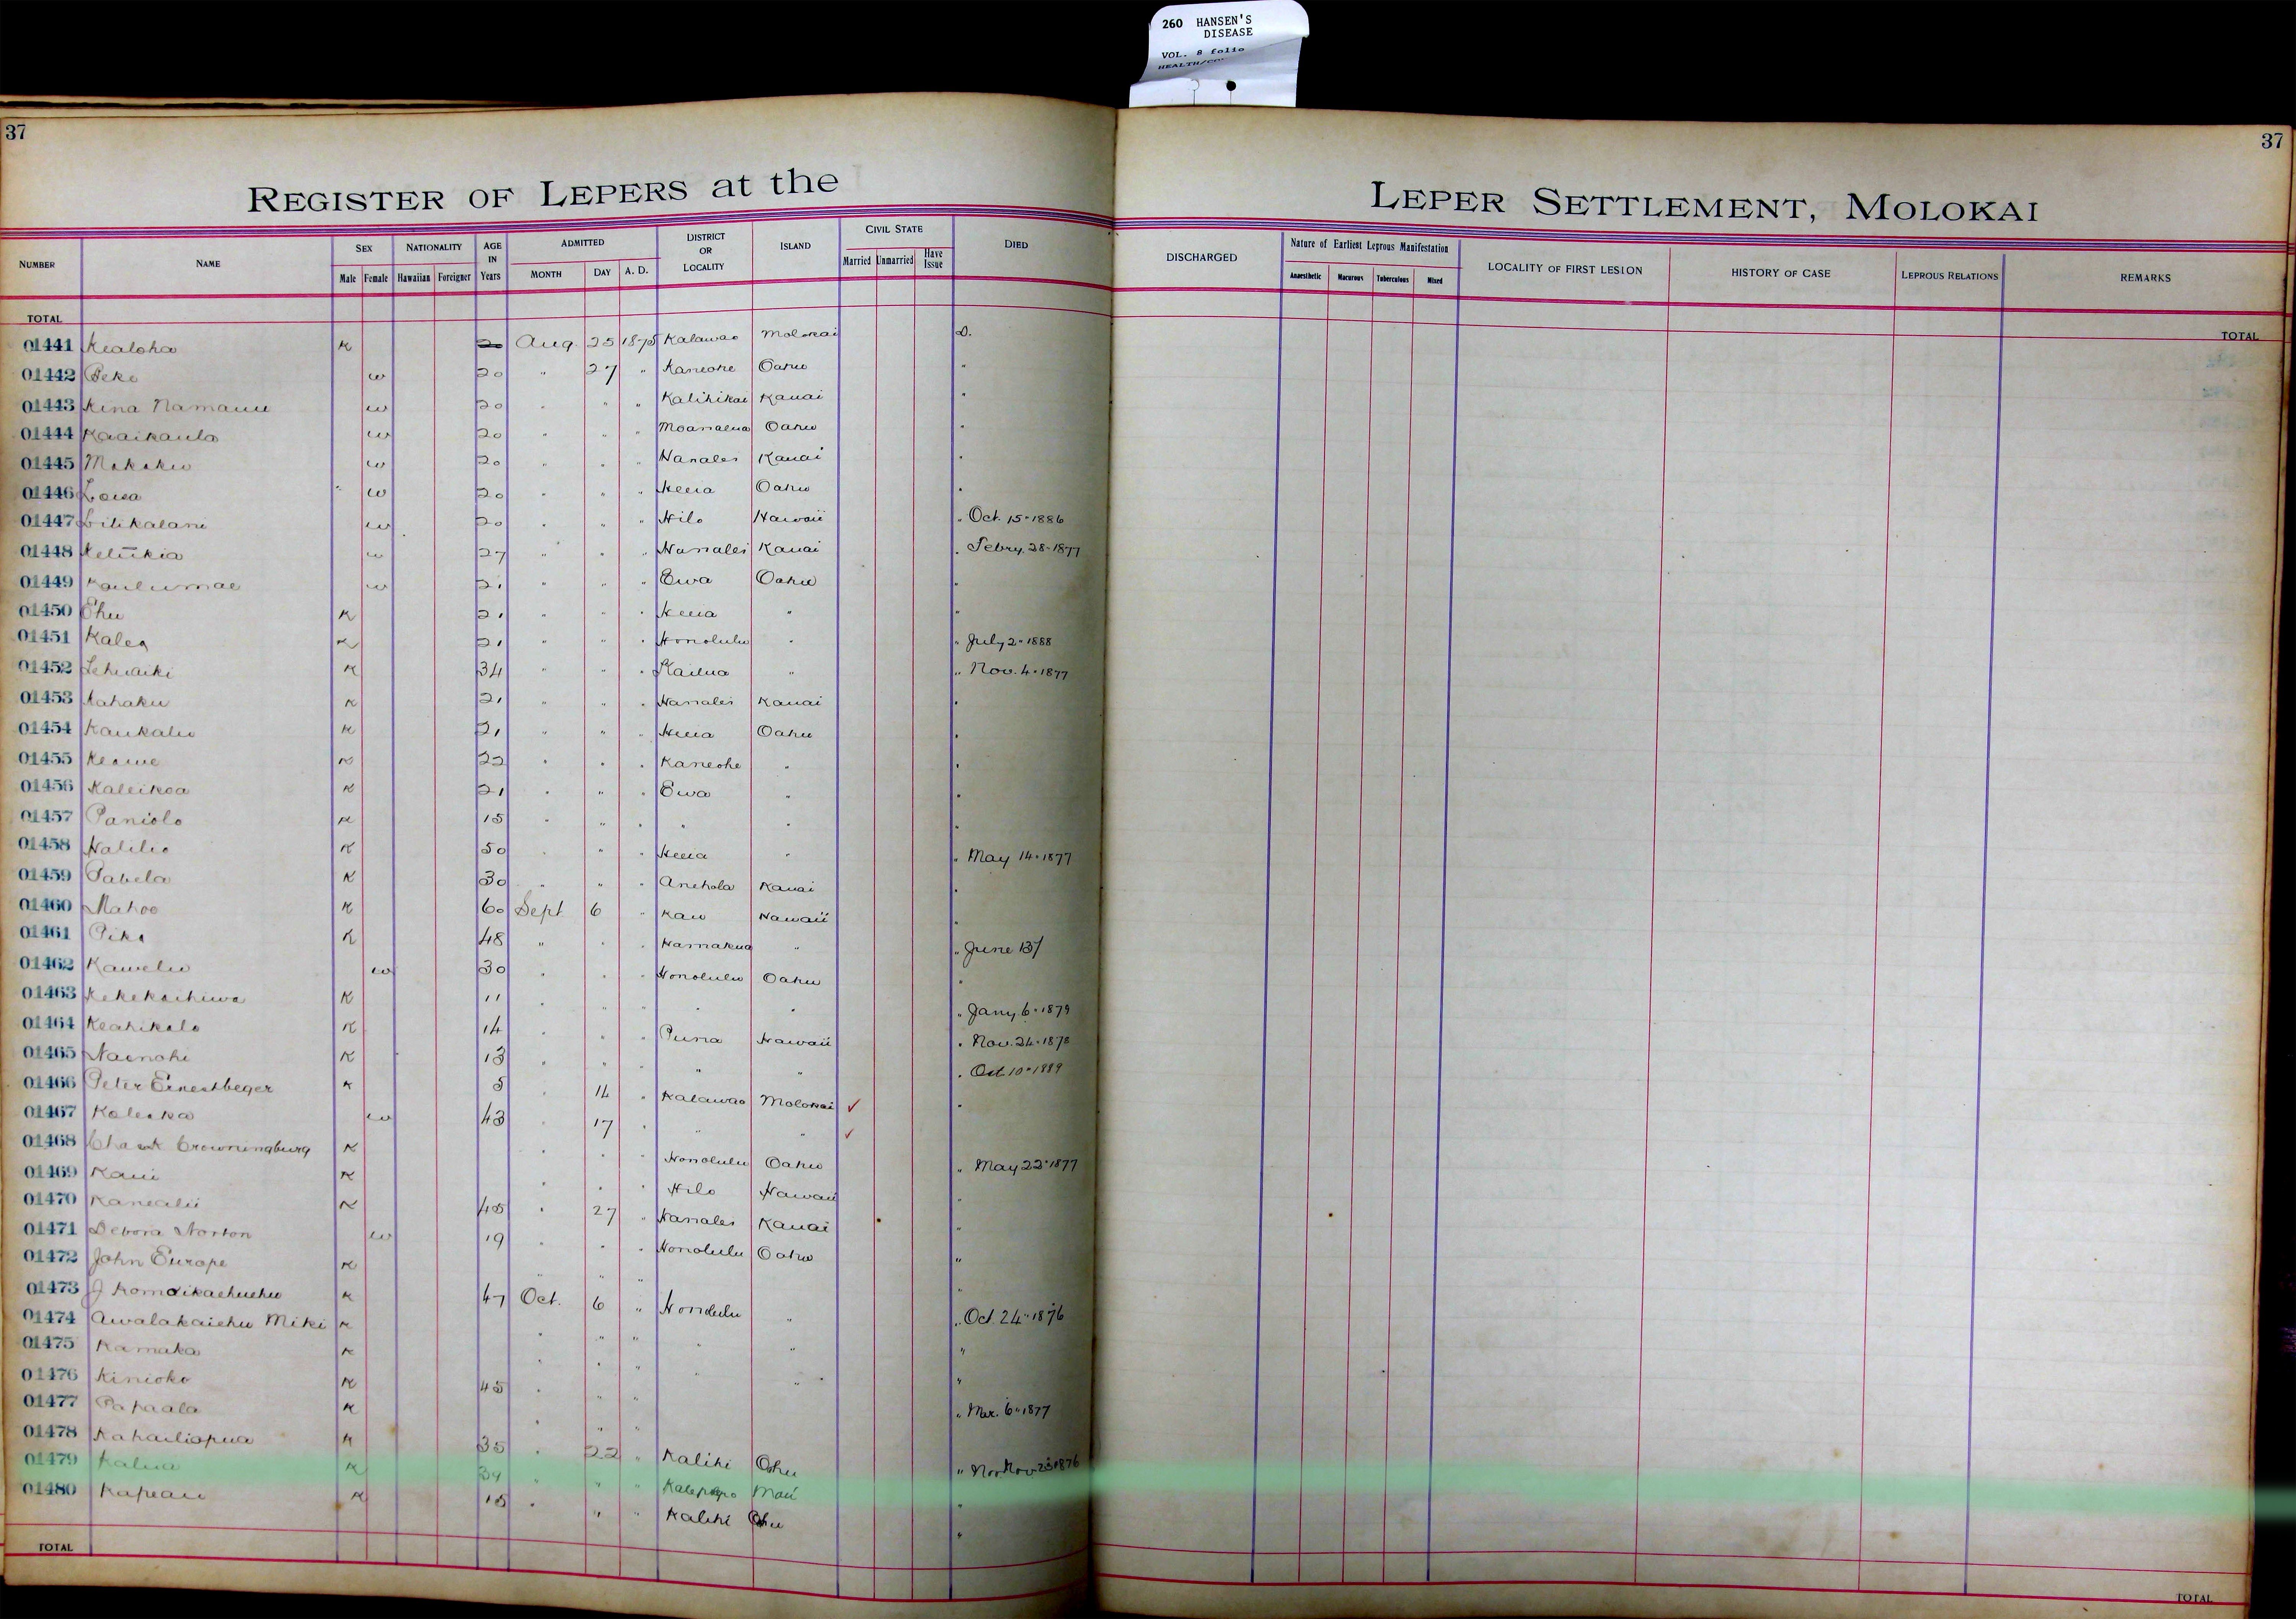 260 HANSEN'S
DISEASE
VOL. 8 folio
37
37
REGISTER OF LEPERS at the
LEPER SETTLEMENT, MOLOKAI
NUMBER NAME SEX Male Female NATIONALITY Hawaiian Foreigner AGE IN Years ADMITTED MONTH DAY A. D. DISTRICT OR LOCALITY ISLAND CIVIL STATE Married Unmarried Have Issue DIED
DISCHARGED Nature of Earliest Leprous Manifestation Anaesthetic Macurous Tuberculous Mixed LOCALITY OF FIRST LESION HISTORY OF CASE LEPROUS RELATIONS REMARKS
TOTAL
TOTAL
01441 Kealoha K 20 Aug. 25 1875 Kalawao Molokai D.
01442 Peke w 20 " 27 " Kaneohe Oahu "
01443 Kina Namauu w 20 " " " Kalihikai Kauai "
01444 Kaaikaula w 20 " " " Moanalua Oahu "
01445 Makaku w 20 " " " Hanalei Kauai "
01446 Loisa w 20 " " " Heeia Oahu "
01447 Lilikalani w 20 " " " Hilo Hawaii " Oct. 15 " 1886
01448 Keliikia w 27 " " " Hanalei Kauai " Febry. 28 " 1877
01449 Kaulumae w 21 " " " Ewa Oahu "
01450 Ehu K 21 " " " Heeia " "
01451 Kalea K 21 " " " Honolulu " " July 2 " 1888
01452 Lehuaiki K 34 " " " Kailua " " Nov. 4 " 1877
01453 Kahaku K 21 " " " Hanalei Kauai "
01454 Kaukaliu K 21 " " " Heeia Oahu "
01455 Keawe K 22 " " " Kaneohe " "
01456 Kaleikoa K 21 " " " Ewa " "
01457 Paniolo K 15 " " " " " "
01458 Halilio K 50 " " " Heeia " " May 14 " 1877
01459 Pabela K 30 " " " Anehola Kauai "
01460 Mahoe K 60 Sept 6 " Kau Hawaii "
01461 Pika K 48 " " " Hamakua " " June 137
01462 Kawelu w 30 " " " Honolulu Oahu "
01463 Kekekahiwa K 11 " " " " " " Jany. 6 " 1879
01464 Keahikolo K 14 " " " Puna Hawaii " Nov. 24 " 1878
01465 Nainohi K 13 " " " " " " Oct 10 " 1889
01466 Peter Ernestbeger K 5 " 14 " Kalawao Molokai ✓ "
01467 Kaleoka w 43 " 17 " " " ✓
01468 Crowningburg K " " " Honolulu Oahu " May 22 " 1877
01469 Kaui K " " " Hilo Hawaii "
01470 Kanealii K 45 " 27 " Hanalei Kauai "
01471 Debora Norton w 19 " " " Honolulu Oahu "
01472 John Europe K " " " "
01473 J Komoikaehuehu K 47 Oct. 6 " Honolulu " " Oct. 24 " 1876
01474 Awalakaiehu Miki K " " " " " "
01475 Kamaka K " " " " " "
01476 Kinioko K 45 " " " " Mar. 6 " 1877
01477 Papaala K " " "
01478 Kahailiopua K 35 " 22 " Kalihi Oahu " Nov 23 1876
01479 Kalua K 34 " " " Kalepolepo Maui "
01480 Kapeau K 15 " " " Kalihi Oahu "
TOTAL
TOTAL